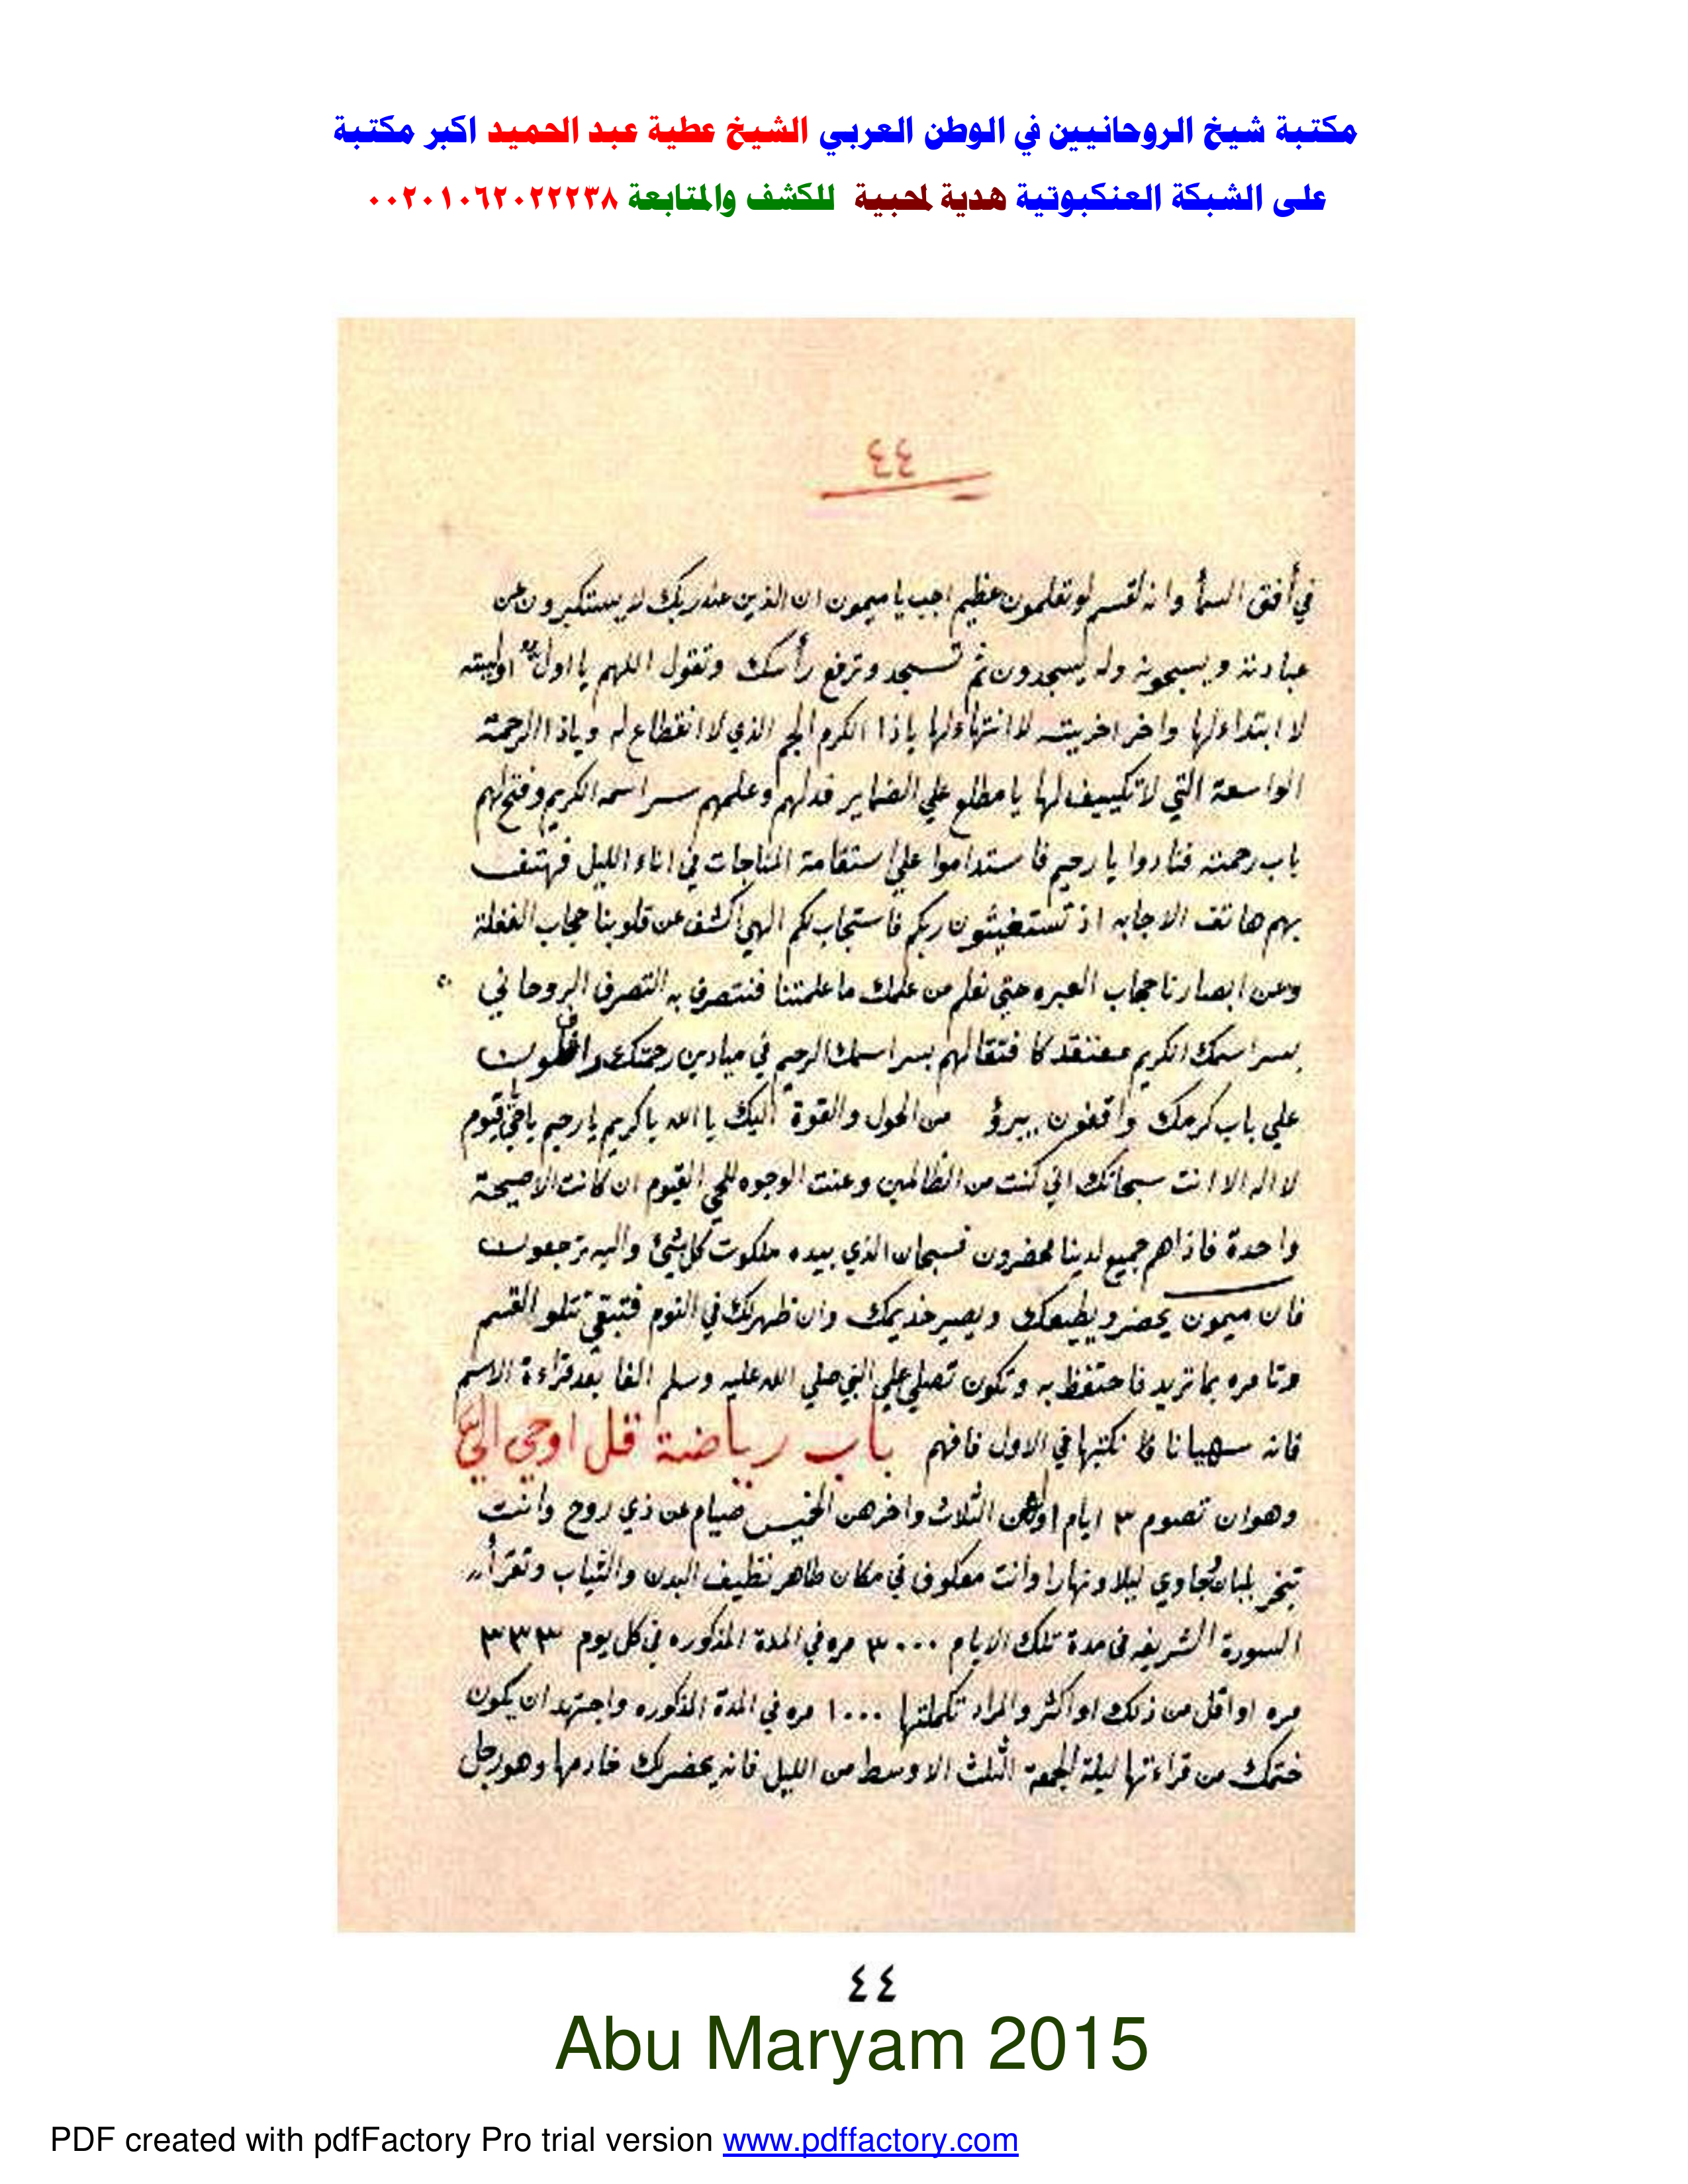 مكتبة شيخ الروحانيين في الوطن العربي الشيخ عطية عبد الحميد اكبر مكتبة
على الشبكة العنكبوتية هدية لمحبية للكشف والمتابعة ٠٠٢٠١٠٦٢٠٢٢٢٣٨
٤٤
في أفق السمأ وانه لقسم لو تعلمون عظيم اجب يا ميمون ان الذين عند ربك لا يستكبرون عن
عبادته ويسبحونه وله يسجدون ثم تسجد وترفع رأسك وتقول اللهم يا اول اوليته
لا ابتداء لها واخر اخريته لا انتهاء لها ياذا الكرم الجم الذي لا انقطاع له وياذا الرحمة
الواسعة التي لا تكييف لها يا مطلع علي الضماير فدلهم وعلمهم سر اسمه الكريم وفتح لهم
باب رحمته فنادوا يا رحيم فاستداموا علي استقامة المناجات في اناء الليل فهتف
بهم هاتف الاجابه اذ تستغيثون ربكم فاستجاب لكم الهي اكشف عن قلوبنا حجاب الغفلة
وعن ابصارنا حجاب العبره حتي نعلم من علمك ما علمتنا فنتصرف به التصرف الروحاني
بسر اسمك الكريم بسر اسمك الرحيم في ميادين رحمتك
علي باب كرمك واقفون من الحول والقوة اليك يا الله يا كريم يا رحيم يا حي يا قيوم
لا اله الا انت سبحانك اني كنت من الظالمين وعنت الوجوه للحي القيوم ان كانت الا صيحة
واحدة فاذا هم جميع لدينا محضرون فسبحان الذي بيده ملكوت كل شئ واليه ترجعون
فان ميمون يحضر ويطيعك ويصير خديمك وان ظهر لك في النوم فتبقي تتلو القسم
وتامره بما تريد فاحتفظ به وتكون تصلي علي النبي صلي الله عليه وسلم الفا بعد قراءة الاسم
فانه سهيانا نكتبها في الاول فافهم باب رياضة قل اوحي الي
وهو ان تصوم ٣ ايام اولهن الثلاث واخرهن الخميس صيام عن ذي روح وانت
تبخر بلبان جاوي ليلا ونهارا وانت معكوف في مكان طاهر نظيف البدن والثياب وتقرأ
السورة الشريفه في مدة تلك الايام ٣٠٠٠ مره في المدة المذكوره في كل يوم ٣٣٣
مره او اقل من ذلك او اكثر والمراد تكملتها ١٠٠٠ مره في المدة المذكوره واجتهد ان يكون
ختمك من قراءتها ليلة الجمعة الثلث الاوسط من الليل فانه يحضر لك خادمها وهو رجل
٤٤
Abu Maryam 2015
PDF created with pdfFactory Pro trial version www.pdffactory.com